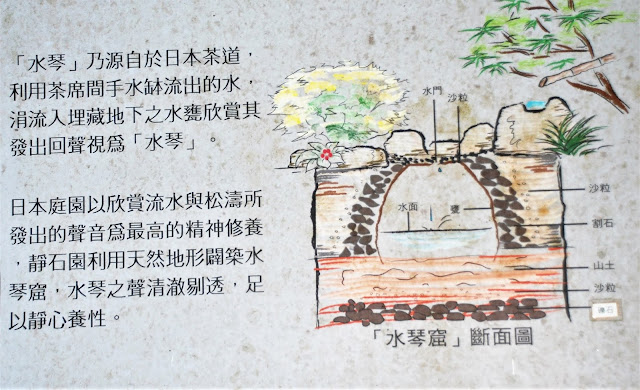 「水琴」乃源自於日本茶道，
利用茶席間手水缽流出的水，
涓流入埋藏地下之水甕欣賞其
發出回聲視爲「水琴」。
日本庭園以欣賞流水與松濤所
發出的聲音爲最高的精神修養
，靜石園利用天然地形闢築水
琴窟，水琴之聲清澈剔透，足
以靜心養性。
水門
沙粒
沙粒
水面
甕
割石
山土
沙粒
「水琴窟」斷面圖